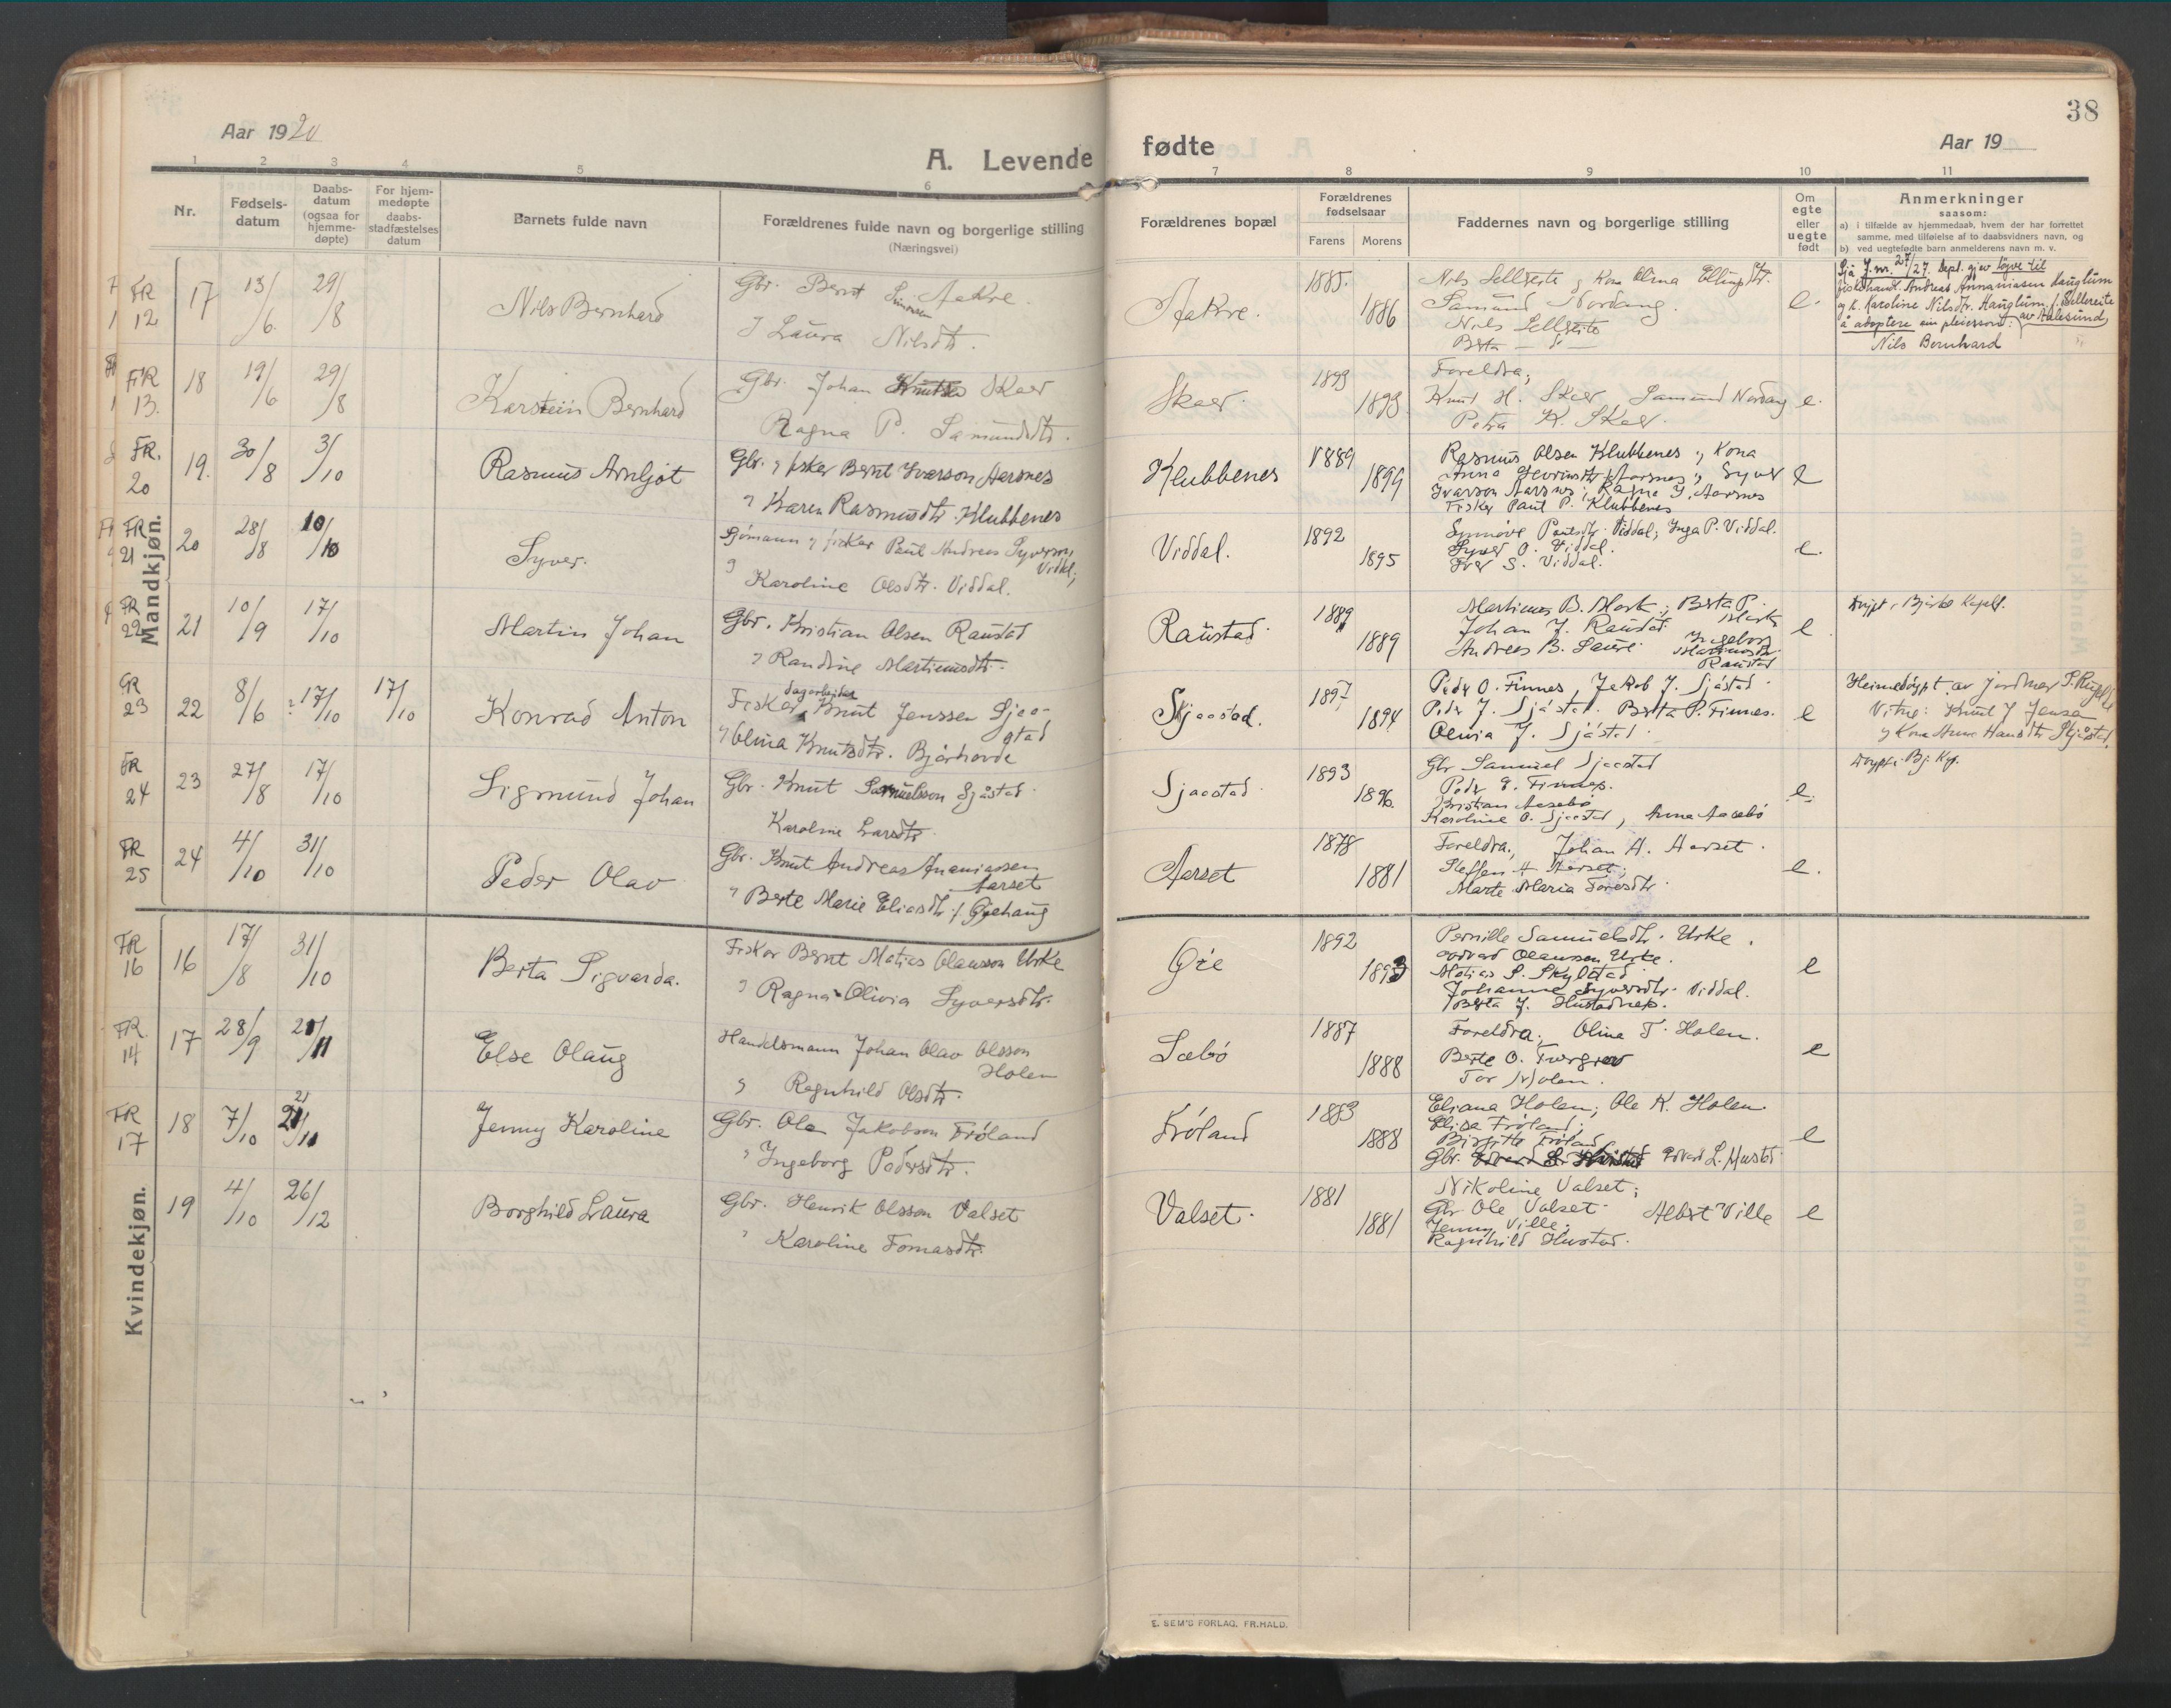 38
Aar 1920
A. Levende fødte
Aar 19
1 2 3 4 5 6 7 8 9 10 11
Nr.
Fødsels-
datum
Daabs-
datum
(ogsaa for
hjemme-
døpte)
For hjem-
medøpte
daabs-
stadfæstelses
datum
Barnets fulde navn
Forældrenes fulde navn og borgerlige stilling
(Næringsvei)
Forældrenes bopæl
Forældrenes
fødselsaar
Farens Morens
Faddernes navn og borgerlige stilling
Om
egte
eller
uegte
født
Anmerkninger
saasom:
a) i tilfælde av hjemmedaab, hvem der har forrettet
samme, med tilføielse af to daabsvidners navn, og
b) ved uegtefødte barn anmelderens navn m. v.
Mandkjøn.
FR 12 17 13/6 29/8 Nils Bernhard
Gbr. Bernt Simonsen Aakre.
Laura Nilsdtr.
Aakre. 1885. 1886
Samund Nordang.
e.
Sjå J.nr. 27/27. Dept. gjev løyve til
fiskehandl. Andreas Annaniassen Hauglum
og k. Karoline Nilsdtr. Hauglum f. Sellereite
av Aalesund,
å adoptere ein pleieson:
Nils Bernhard
FR 13. 18 19/6 29/8 Karstein Bernhard
Gbr. Johan Knutson Skaer
Ragna P. Samundsdtr.
Skaer. 1893 1893.
Foreldra;
Knut H. Skaer Samund Nordang
Petra K. Skaer.
e.
FR. 20 19. 30/8 3/10 Rasmus Arnljot
Gbr. og fisker Bernt Ivarson Aarsnes
og Karen Rasmusdtr. Klubbenes
Klubbenes 1889 1899
Rasmus Olsen Klubbenes og Kona
Syver
Ivarson Aarsnes; Ragna I. Aarsnes
Fisker Paul P. Klubbenes
e
FR 21 20 28/8 10/10 Syver.
Sjømann og fisker Paul Andreas Syverson,
Viddal;
og Karoline Olsdtr. Viddal.
Viddal. 1892 1895
Synnøve Paulsdtr. Viddal; Inga P. Viddal.
Syver O. Viddal.
Iver S. Viddal.
e.
FR 22 21 10/9 17/10 Martin Johan
Gbr. Kristian Olsen Raustad
og Randine Martinusdtr.
Raustad 1889 1889
Martinus B. Mork; Berta P.
Mork
Johan J. Raustad.
Andreas B. Saure. Ingeborg
Martinusdtr.
Raustad
e
GR 23 22 8/6 17/10 17/10 Konrad Anton
dagarbeidar
Fiskar Knut Jenssen Sjaa-
stad
og Olina Knutsdtr. Bjørhovde
Skjaastad. 1897 1894
Peder O. Finnes, Jakob J. Sjåstad.
Peder J. Sjåstad. Berta P. Finnes.
Olivia J. Sjåstad.
e
Heimedøypt av jordmor
Vitne: Knut J Jensen
og Kona Anne Hansdtr Skjåstad.
FR 24 23 27/8 17/10 Sigmund Johan
Gbr. Knut Samuelsson Sjåstad.
Karoline Larsdtr.
Sjaastad 1893 1896.
Gbr Samuel Sjaastad
Kristian Aasebø
Karoline O. Sjaastad, Anna Aasebø
e.
FR 25 24 4/10 31/10 Peder Olav
Gbr. Knut Andreas Ananiassen
Aarset
og Berte Marie Eliasdtr. f. Gjehaug
Aarset 1878 1881
Foreldra., Johan A. Aarset.
Steffen A Aarset;
e.
Kvindekjøn.
FR 16 16 17/8 31/10 Berta Sigvarda.
Fiskar Bernt Matias Olausson Urke
og Ragna Olivia Syversdtr.
Øie 1892 1893
Pernille Samuelsdtr. Urke.
Odvard Olaussen Urke.
Matias S. Skylstad
Johanne Syversdtr. Viddal.
Berta J. Hustadnes.
e
FR. 14 17 28/9 21/11 Else Olaug
Handelsmann Johan Olav Olsson
Holen
og Ragnhild Olsdtr.
Sæbø 1887 1888
Foreldra; Olina T. Holen.
Tor Molen.
e
FR 17 18 7/10 21/11 Jenny Karoline
Gbr. Ola Jakobson Frøland
og Ingeborg Pedersdtr.
Frøland 1883 1888
Eliana Holen; Ole K. Holen.
Elisa Frøland;
Birgitte Frøland
Gbr. Edvard L. Mustad
e
19 4/10 26/12 Borghild Laura
Gbr. Henrik Olsson Valset
Karoline Tomasdtr.
Valset. 1881 1881
Nikoline Valset;
Gbr Ole Valset. Albert Ville
Jenny Ville.
Ragnhild Hustad.
e
E. SEM'S FORLAG, FR.HALD.